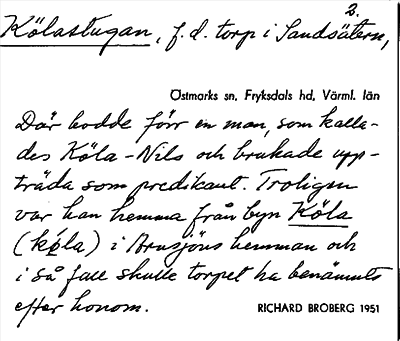 2.
Kölastugan, f. d. torp i Sandsätern,
Östmarks sn, Fryksdals hd, Värml. län
Där bodde förr en man, som kalla-
des Köla-Nils och brukade upp-
träda som predikant. Troligen
var han hemma från byn Köla
(kǫ́la) i Arnsjöns hemman och
i så fall skulle torpet ha benämnts
efter honom.
RICHARD BROBERG 1951